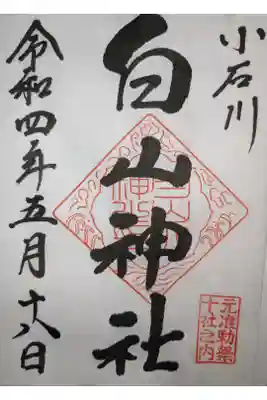 小石川
白山神社
令和四年五月十八日
元准勅祭
十社之内